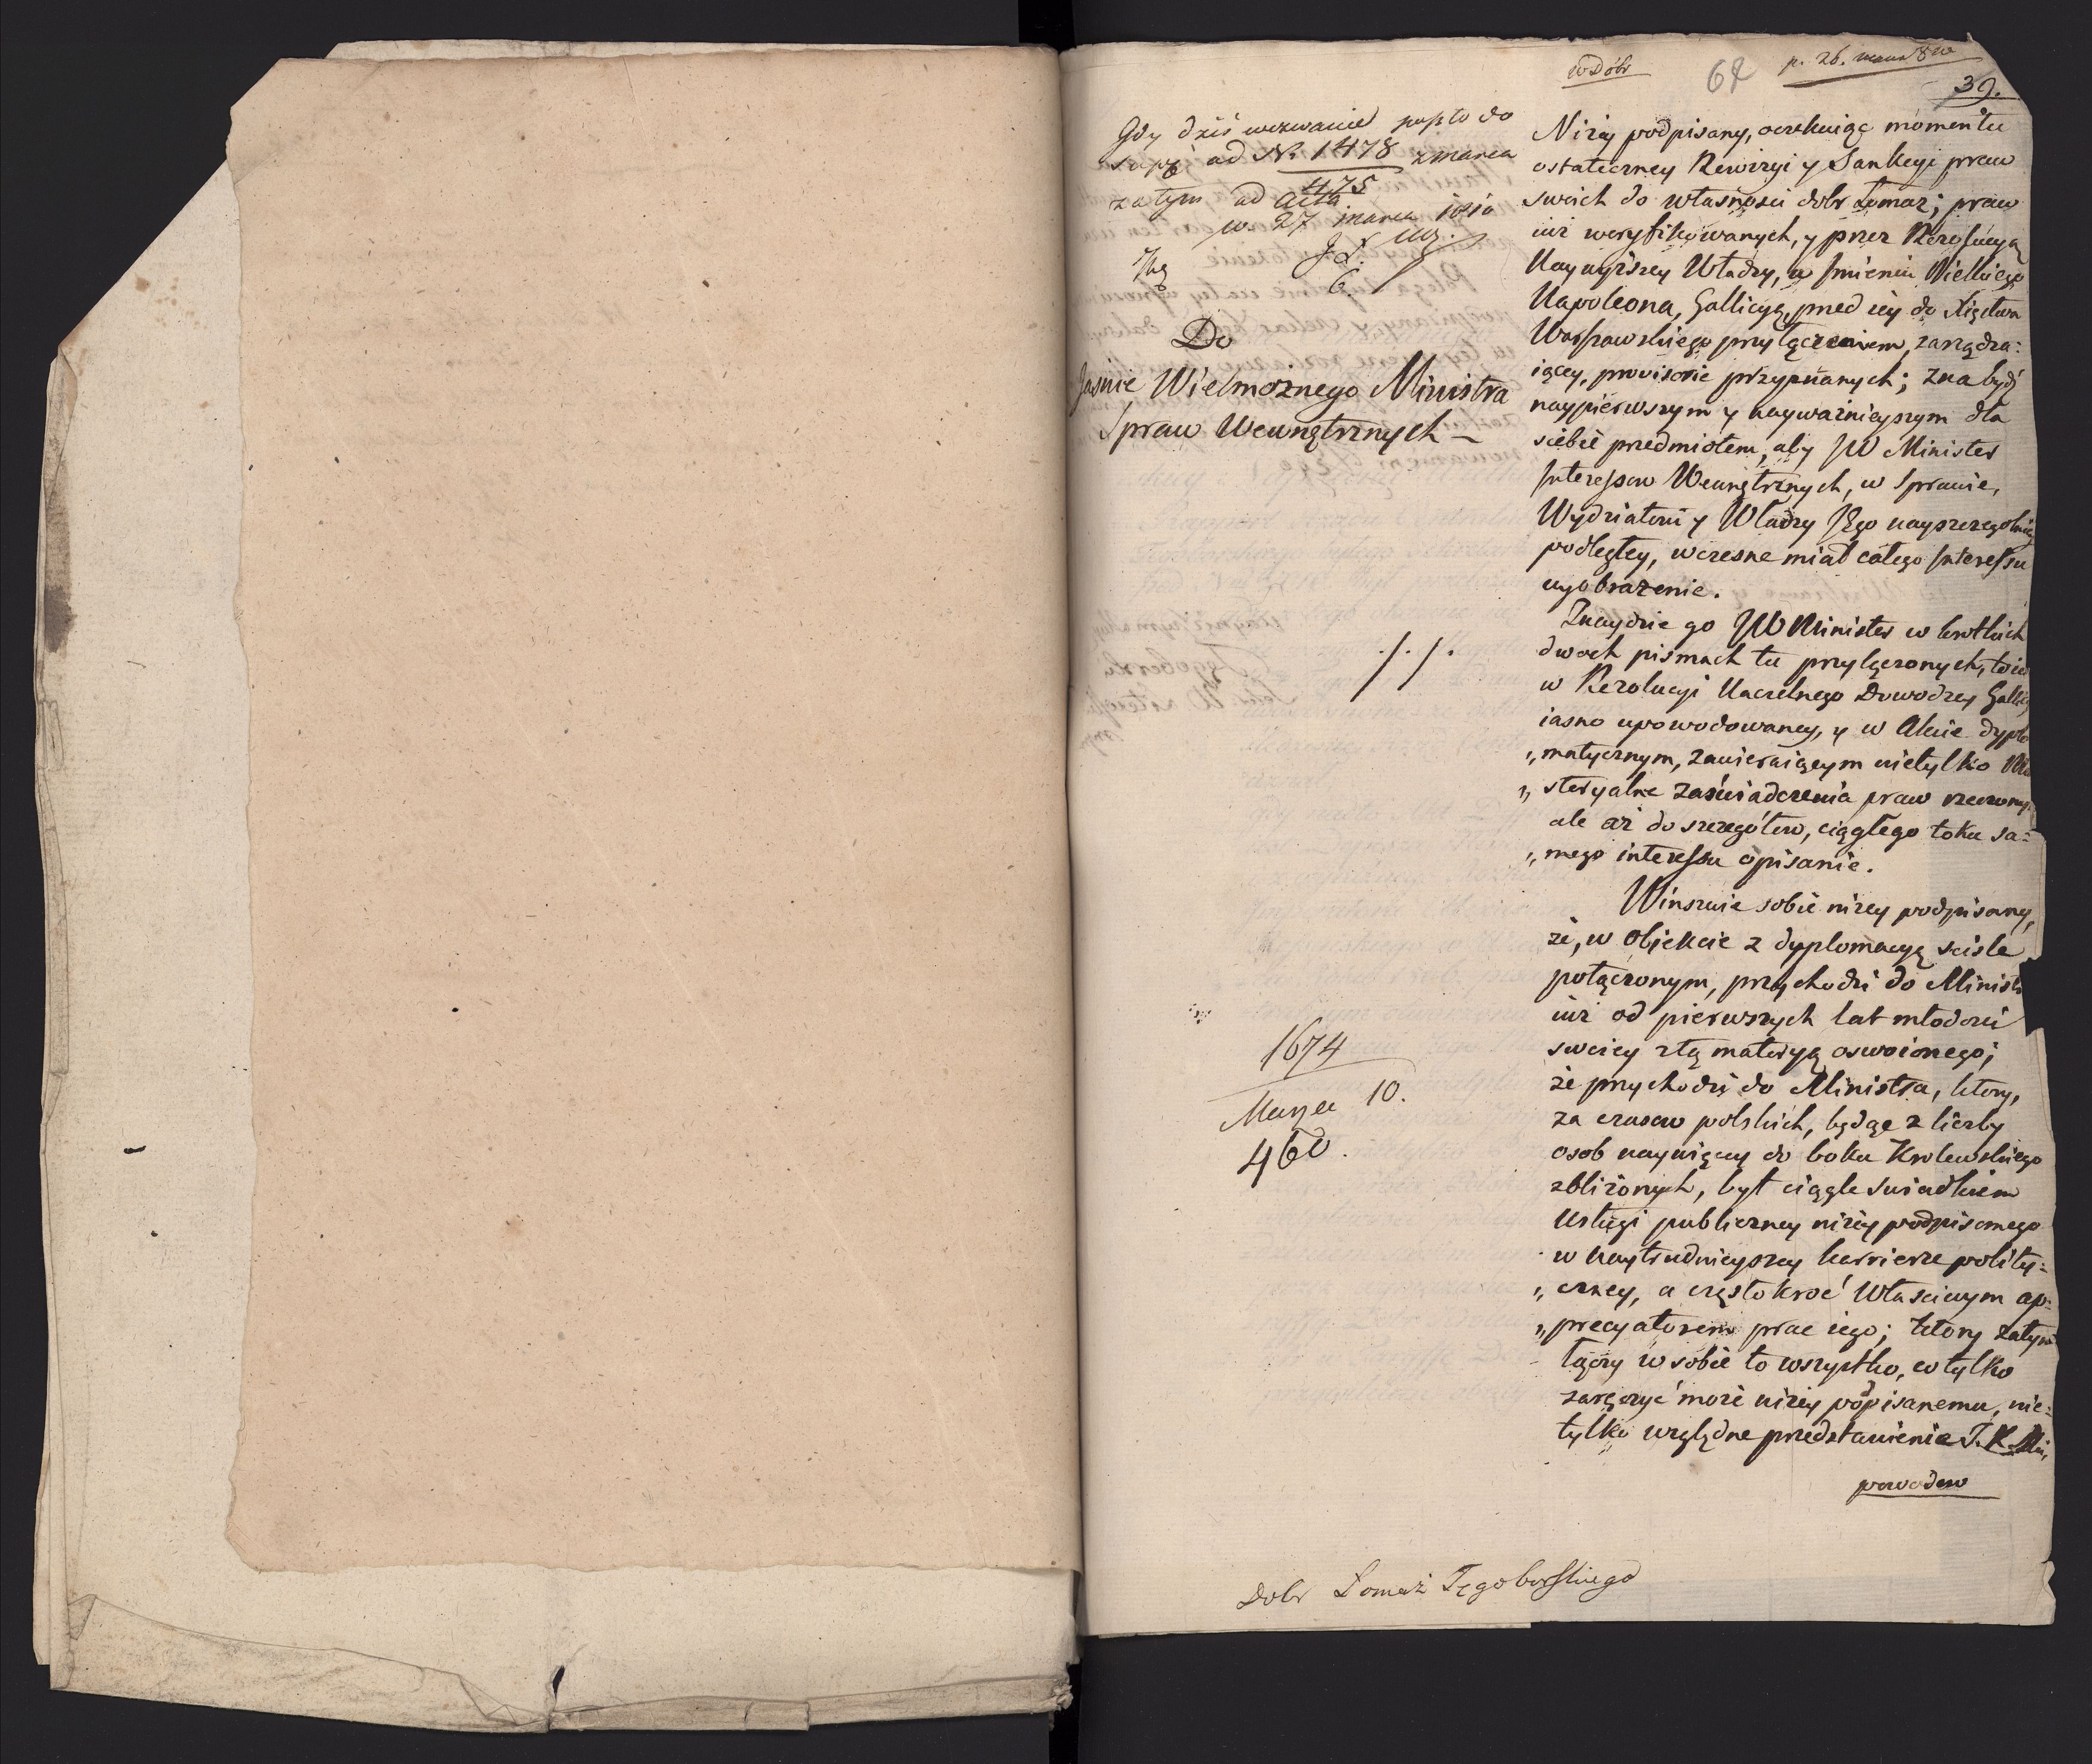 w Dóbr
62
p. 26. marca 810
39.
Gdy dziś wezwanie poszło do
ad N. 1478 z marca
475
zatym ad acta
w. 27 marca 1810
Do
Jasnie Wielmożnego Ministra
Spraw Wewnętrznych —
./. /.
1674
Marzec 10.
460.
Niżey podpisany, oczekuiąc momentu
ostateczney Rewizyi y Sankcyi praw
swoich do własności dobr Łomaz; praw
iuż weryfikowanych, y przez Rezolucyą
Naywyższey Władzy, w Jmieniu Wielkiego
Napoleona, Gallicyą, przed iey do Xięstwa
Warszawskiego przyłączeniem, zarządza:
iącey, provisorie przyznanych; zna bydź
naypierwszym y nayważnieyszym dla
siebie przedmiotem, aby JW Minister
Jnteressow Wewnętrznych, w Sprawie,
Wydziałowi y Władzy JEgo nayszczegolniey
podległey, wczesne miał całego Jnteressu
wyobrażenie.
Znaydzie go JW Minister w krotkich
dwoch pismach tu przyłączonych, to iest
w Rezolucyi Naczelnego Dowodzcy Gallicyi
iasno upowodowaney, y w Akcie dyplo
„matycznym, zawieraiącym nietylko Mini
„steryalne zaświadczenia praw rzeczonych
ale aż do szczegółow, ciągłego toku sa:
„mego interessu opisanie.
Winszuie sobie niżey podpisany,
że, w objekcie z dyplomacyą sciśle
połączonym, przychodzi do Ministra
iuż od pierwszych lat młodości
swoiey z tą materyą oswoionego;
że przychodzi do Ministra, ktory,
za czasow polskich, będąc z liczby
osob naywięcey do boku Krolewskiego
zbliżonych, był ciągle swiadkiem
usługi publiczney niżey podpisanego
w naytrudnieyszey karrierze polity:
„czney, a częstokroć właściwym ap:
„precyatorem prac iego; ktory zatym
łączy w sobie to wszystko, co tylko
zaręczyć może niżey podpisanemu, nie:
tylko względne przedstawienie J. K. Mci,
powodow
Dobr Łomaz Tęgoborskiego